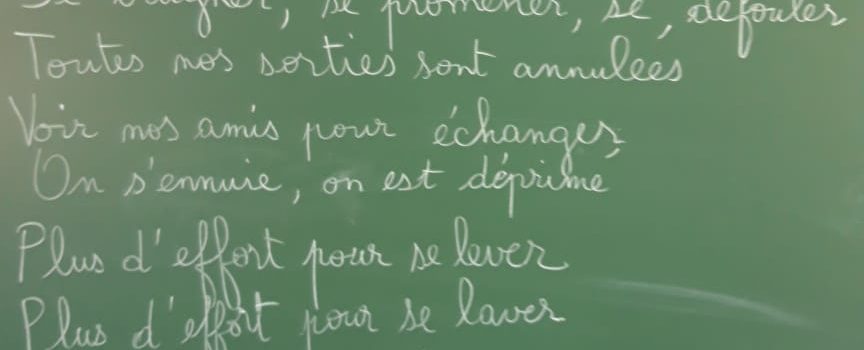 Se baigner, se promener, se défouler
Toutes nos sorties sont annulées
Voir nos amis pour échanger,
On s'ennuie, on est déprimé
Plus d'effort pour se lever
Plus d'effort pour se laver